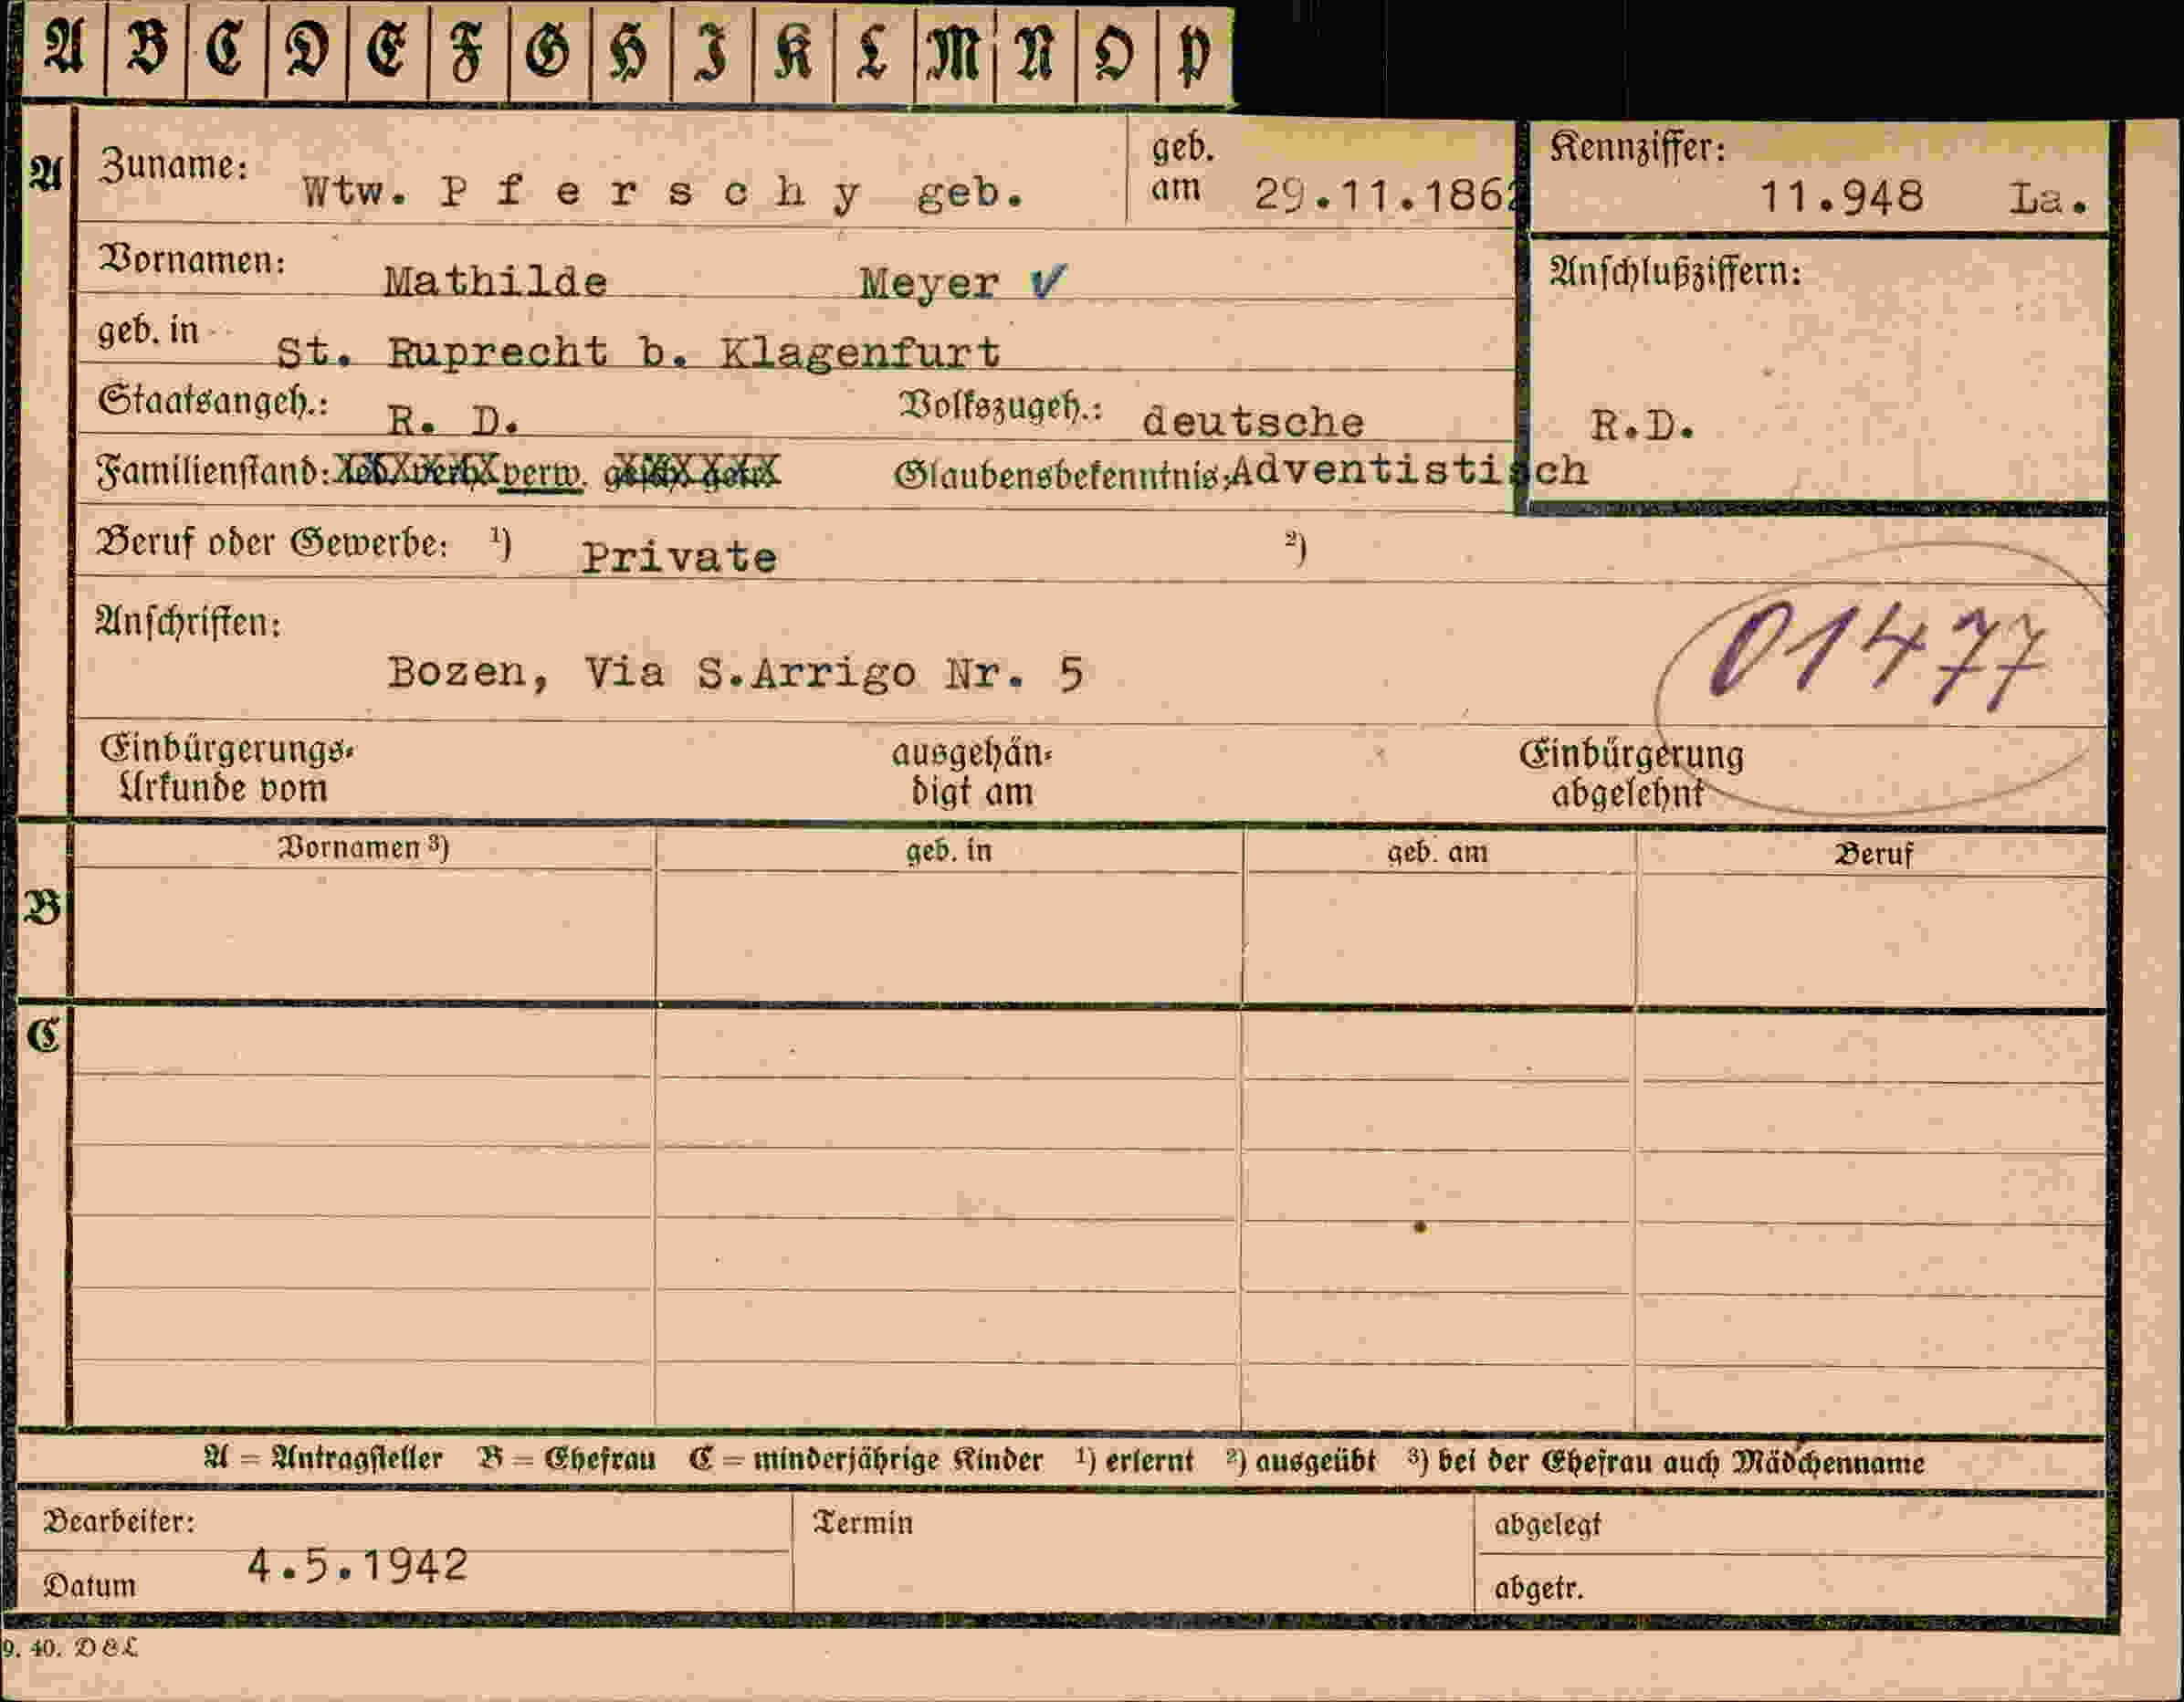 A B C D E F G H I K L M N O P
A Zuname: Wtw. P f e r s c h y geb. geb. am 29.11.1862 Kennziffer: 11.948 La.
Vornamen: Mathilde Meyer ✓ Anschlußziffern:
geb. in St. Ruprecht b. Klagenfurt
Staatsangeh.: R. D. Volkszugeh.: deutsche R.D.
Familienstand: verw. Glaubensbekenntnis: Adventistisch
Beruf oder Gewerbe: ¹) Private ²)
Anschriften:
01477
Bozen, Via S.Arrigo Nr. 5
Einbürgerungs- ausgehän- Einbürgerung
Urkunde vom digt am abgelehnt
Vornamen ³) geb. in geb. am Beruf
B
C
A = Antragsteller B = Ehefrau C = minderjährige Kinder ¹) erlernt ²) ausgeübt ³) bei der Ehefrau auch Mädchenname
Bearbeiter: Termin abgelegt
Datum 4.5.1942 abgetr.
9. 40. D&L